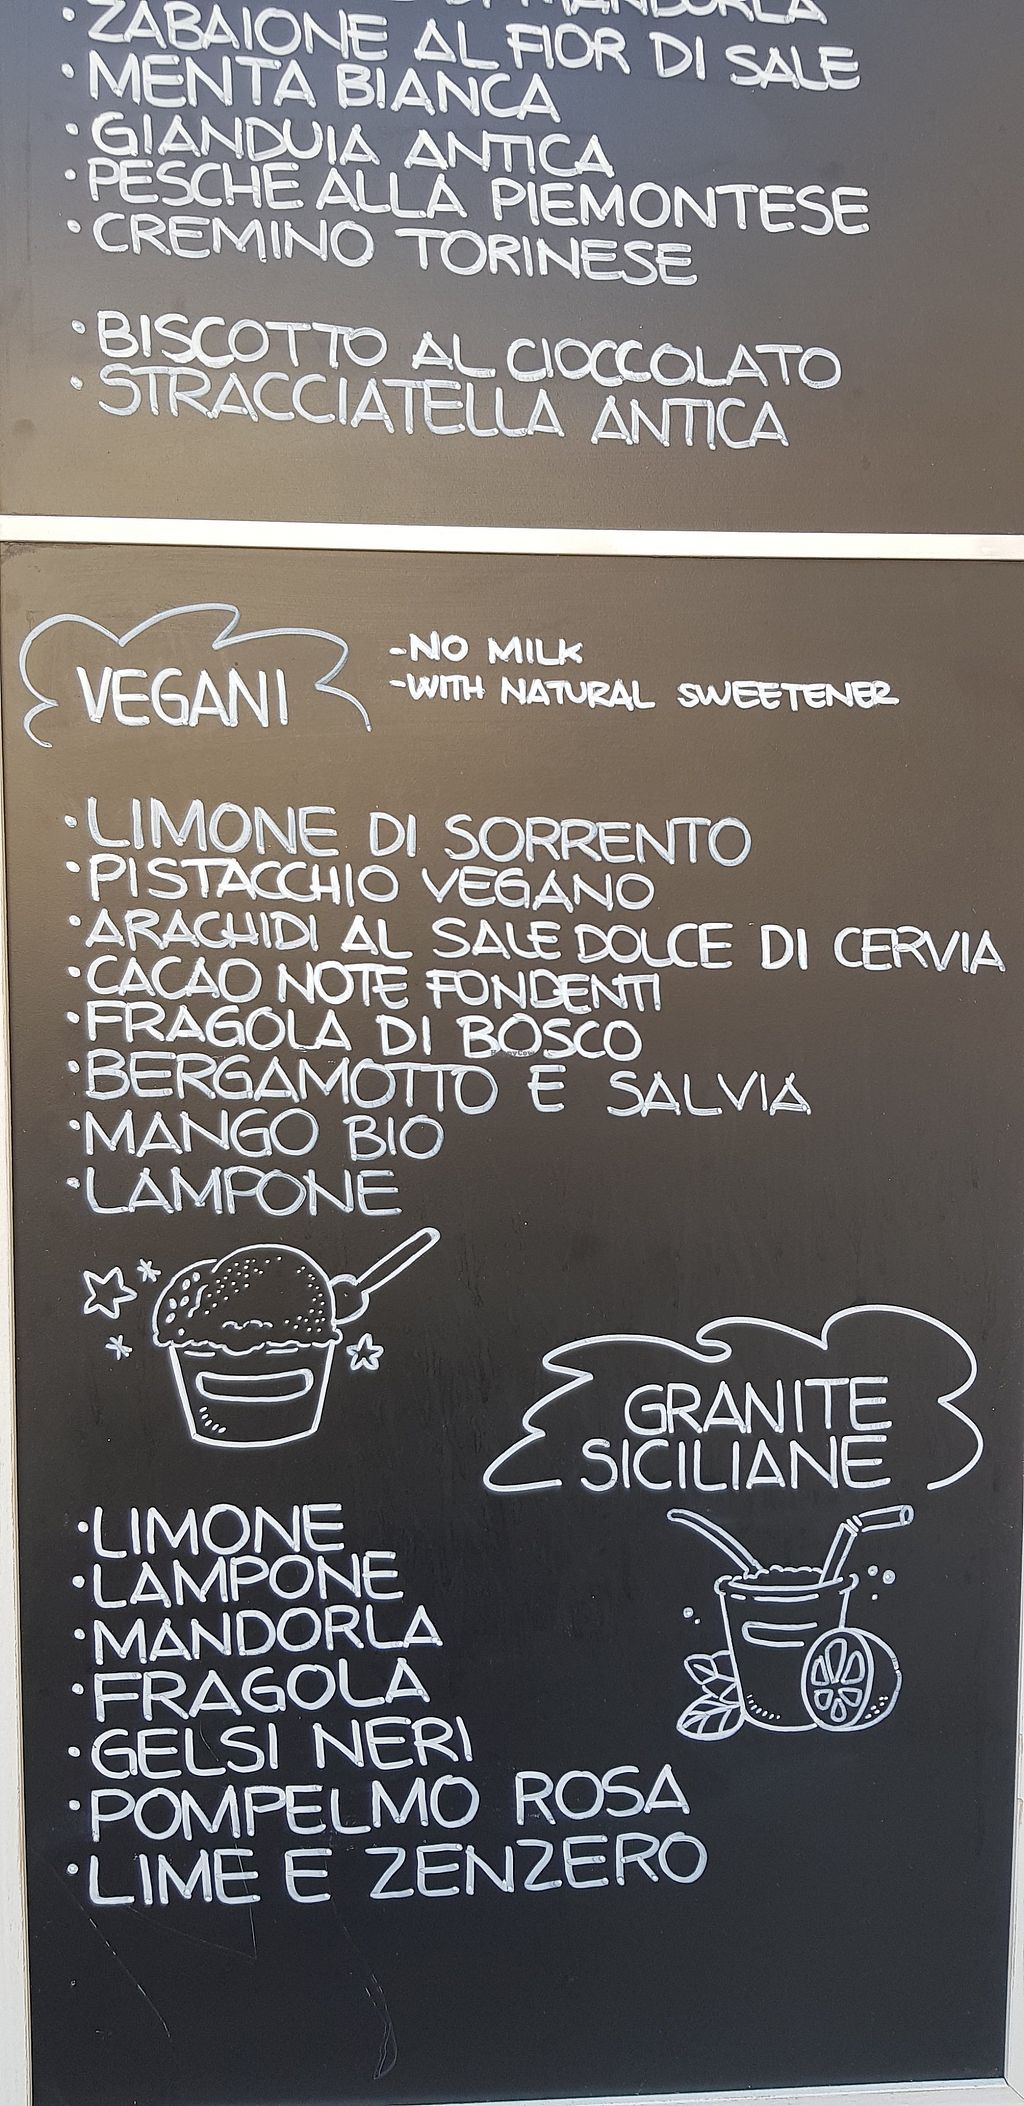 DI MANDORLA
· ZABAIONE AL FIOR DI SALE
· MENTA BIANCA
· GIANDUIA ANTICA
· PESCHE ALLA PIEMONTESE
· CREMINO TORINESE
· BISCOTTO AL CIOCCOLATO
· STRACCIATELLA ANTICA
VEGANI
-NO MILK
-WITH NATURAL SWEETENER
· LIMONE DI SORRENTO
· PISTACCHIO VEGANO
· ARACHIDI AL SALE DOLCE DI CERVIA
· CACAO NOTE FONDENTI
· FRAGOLA DI BOSCO
HappyCow
· BERGAMOTTO E SALVIA
· MANGO BIO
· LAMPONE
GRANITE
SICILIANE
· LIMONE
· LAMPONE
· MANDORLA
· FRAGOLA
· GELSI NERI
· POMPELMO ROSA
· LIME E ZENZERO